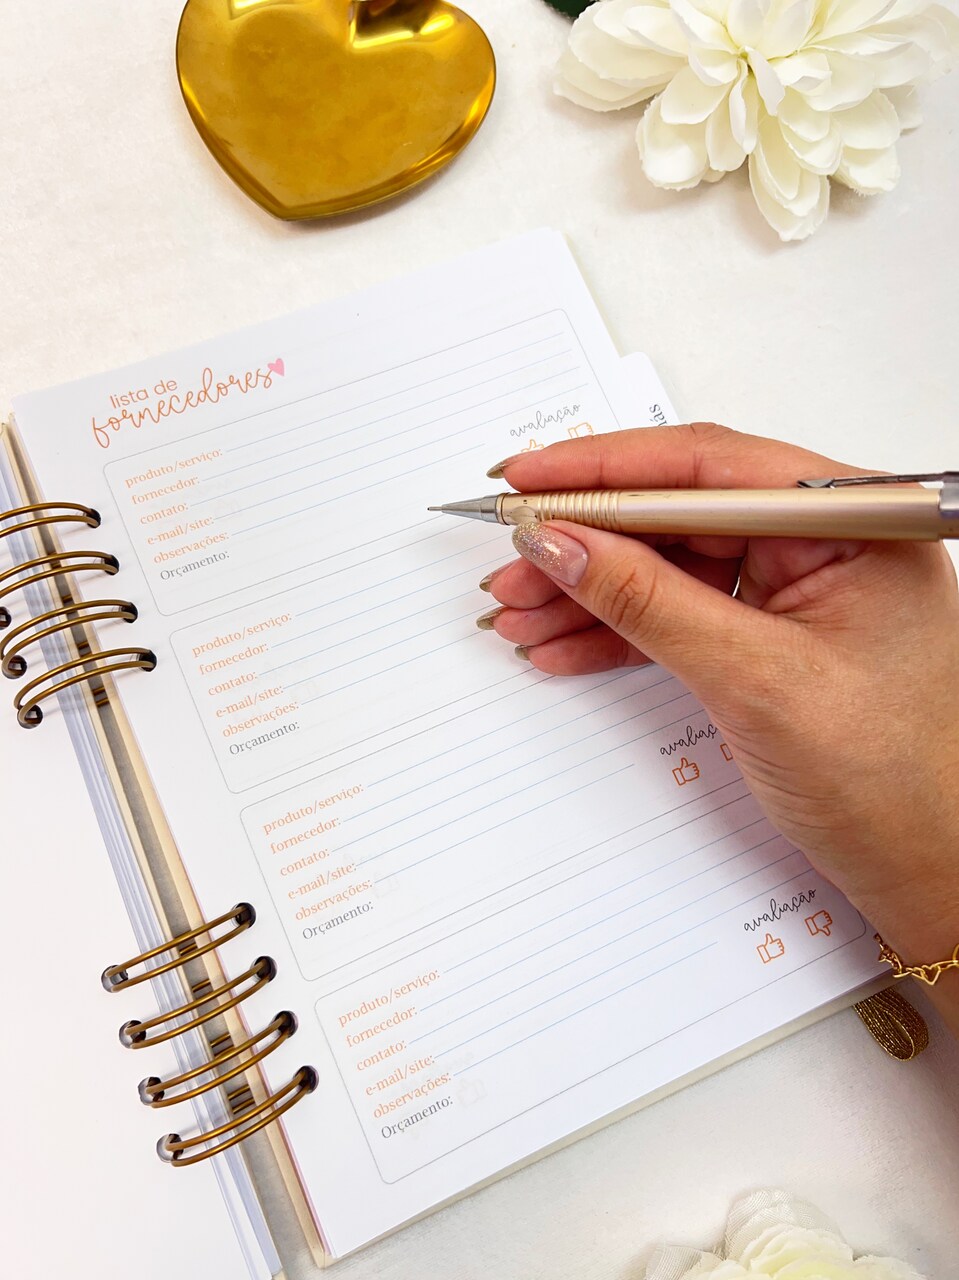 lista de
fornecedores
produto/serviço:
fornecedor:
contato:
e-mail/site:
observações:
Orçamento:
avaliação
produto/serviço:
fornecedor:
contato:
e-mail/site:
observações:
Orçamento:
produto/serviço:
fornecedor:
contato:
e-mail/site:
observações:
Orçamento:
avaliaç
produto/serviço:
fornecedor:
contato:
e-mail/site:
observações:
Orçamento:
avaliação